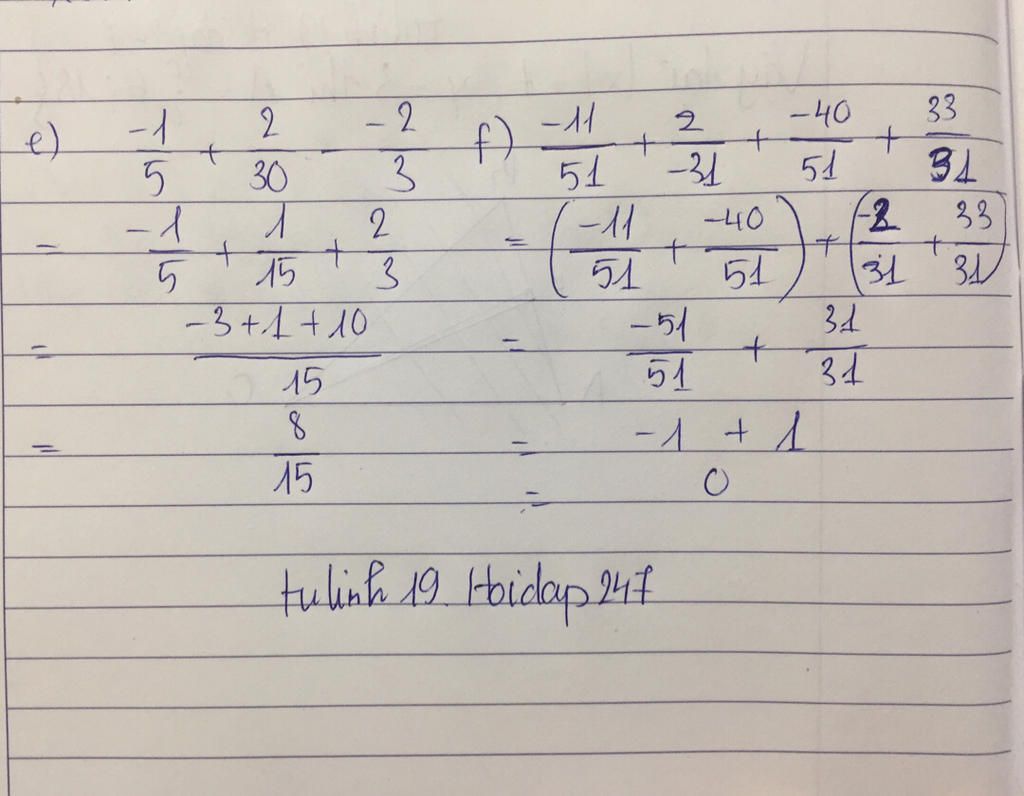 e) -1/5 + 2/30 - -2/3
= -1/5 + 1/15 + 2/3
= -3+1+10/15
= 8/15
f) -11/51 + 2/-31 + -40/51 + 33/31
= (-11/51 + -40/51) + (-2/31 + 33/31)
= -51/51 + 31/31
= -1 + 1
= 0
tulinh19. Hoidap247